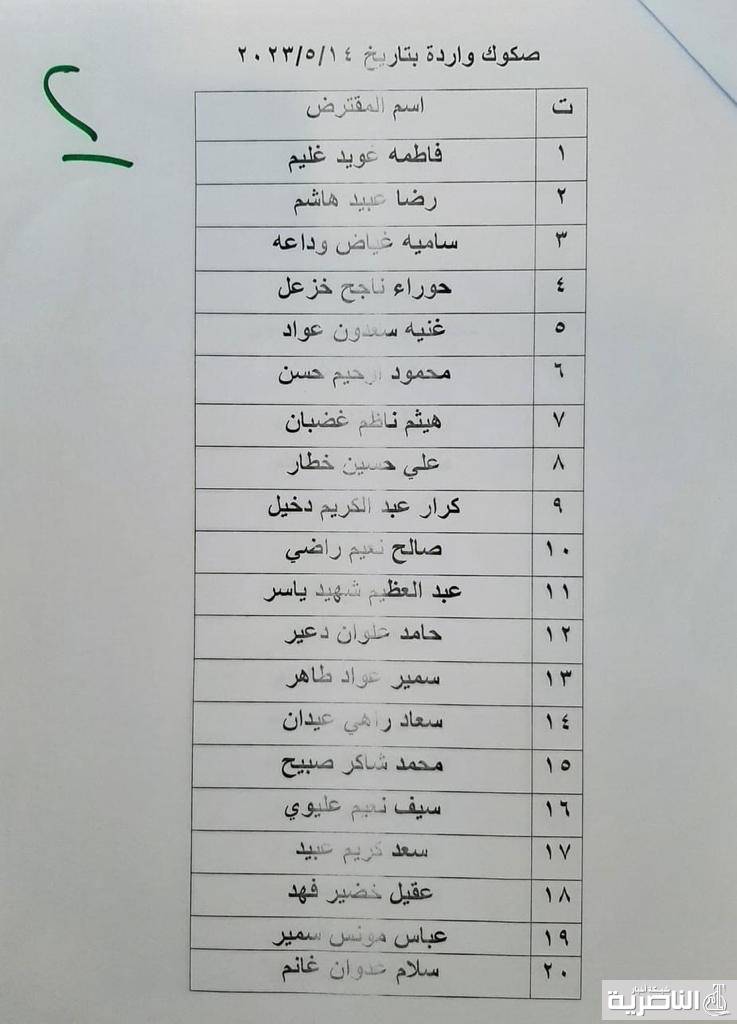 صكوك واردة بتاريخ ٢٠٢٣/٥/١٤
٢
ت اسم المقترض
١ فاطمه عويد غليم
٢ رضا عبيد هاشم
٣ ساميه غياض وداعه
٤ حوراء ناجح خزعل
٥ غنيه سعدون عواد
٦ محمود ارحيم حسن
٧ هيثم ناظم غضبان
٨ علي حسين خطار
٩ كرار عبد الكريم دخيل
١٠ صالح نعيم راضي
١١ عبد العظيم شهيد ياسر
١٢ حامد علوان دعير
١٣ سمير عواد طاهر
١٤ سعاد راهي عيدان
١٥ محمد شاكر صبيح
١٦ سيف نعيم عليوي
١٧ سعد كريم عبيد
١٨ عقيل خضير فهد
١٩ عباس مونس سمير
٢٠ سلام عدوان غانم
شبكة أخبار
الناصرية